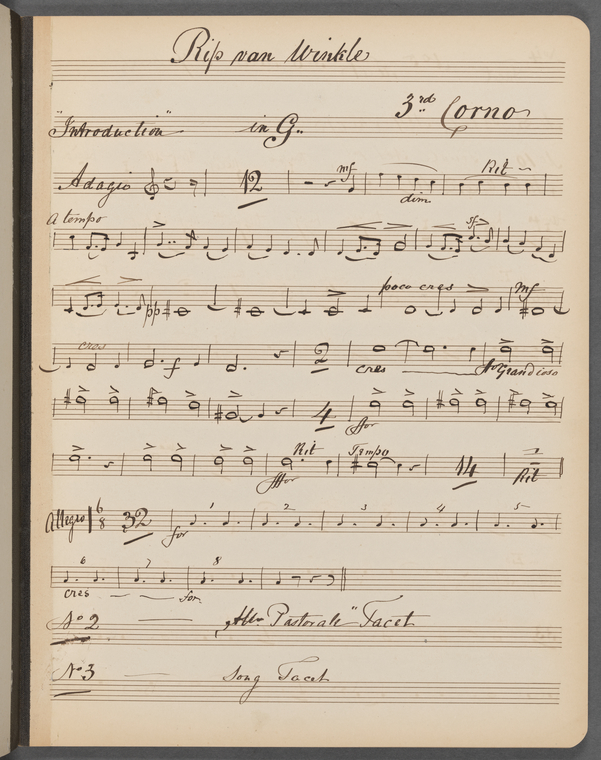 Rip van Winkle
3rd Corno
"Introduction" in G
Adagio 12 mf dim Rit
a tempo sf
pp poco cres mf
cres f 2 cres for Grandioso
4 ffor
Rit Tempo
fffor 14 1 Rit
Allegro 6 8 32 for 1 2 3 4 5
6 7 8
cres for
No 2 "Allo Pastorale" Tacet
No 3 Song Tacet